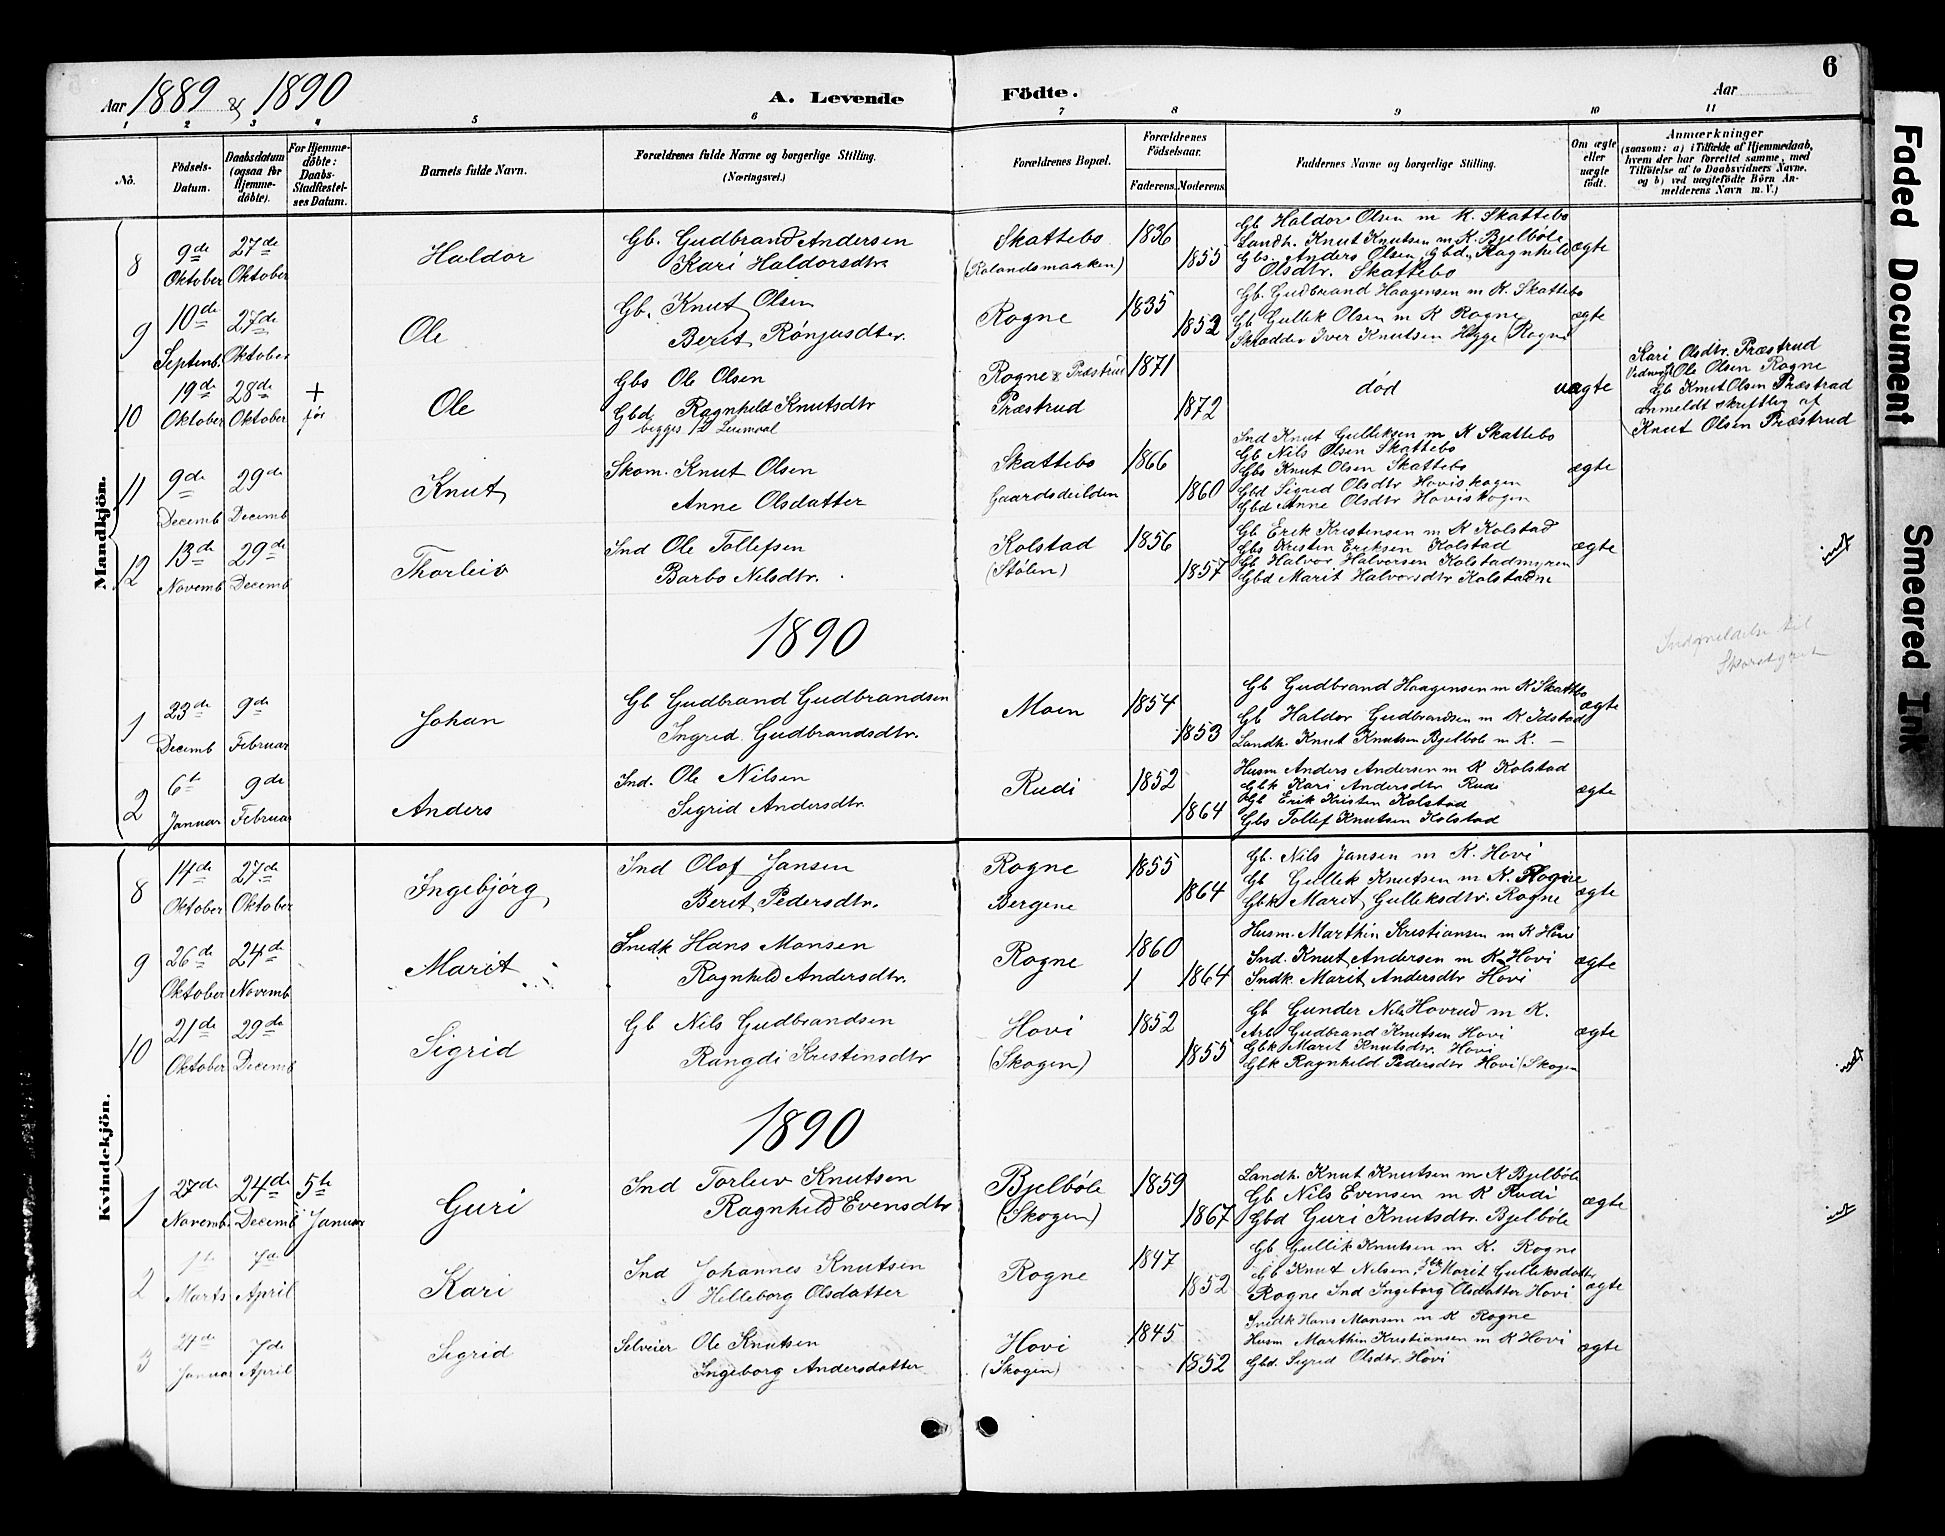 Aar 1889 & 1890
A. Levende Födte.
Aar
6
1 2 3 4 5 6 7 8 9 10 11
No.
Födsels-Datum.
Daabsdatum (ogsaa for Hjemme-döbte).
For Hjemme-döbte: Daabs-Stadfæstel-ses Datum.
Barnets fulde Navn.
Forældrenes fulde Navne og borgerlige Stilling. (Næringsvei.)
Forældrenes Bopæl.
Forældrenes Födselsaar.
Faderens. Moderens.
Faddernes Navne og borgerlige Stilling.
Om ægte eller uægte födt.
Anmærkninger
(saasom: a) i Tilfælde af Hjemmedaab, hvem der har forrettet samme, med Tilföielse af to Daabsvidners Navne, og b) ved uægtefödte Börn An-melderens Navn m. V.)
Mandkjön.
8 9de Oktober 27de Oktober Haldor
Gb. Gudbrand Andersen
Kari Haldorsdtr
Skattebo (Rolandsmarken) 1836 1855
Gb Haldor Olsen m K. Skattebo
Landh. Knut Knutsen m K. Bjelböle
Gbs. Anders Olsen, Gbd. Ragnhild
Olsdtr. Skattebo
ægte
9 10de Septemb. 27de Oktober Ole
Gb. Knut Olsen
Berit Rönjusdter.
Rogne 1835 1852
Gb. Gudbrand Haagensen m K. Skattebo
Gb Gullik Olsen m K Rogne
Skrædder Iver Knutsen Hegge (Rogne
ægte
10 19de Oktober 28de Oktober + før Ole
Gbs Ole Olsen
Gbd Ragnheld Knutsdtr
begges 1ste Leiermaal
Rogne & Præstrud
Præstrud 1871 1872
død
uægte
Kari Olsdtr. Præstrud
Ole Olsen Rogne
Gb Knut Olsen Præstrud
anmeldt skriftlig af
Knut Olsen Præstrud
11 9de Decemb 29de Decemb Knut
Skom. Knut Olsen
Anne Olsdatter
Skattebo
Gaardsdeilden 1866 1860
Ind Knut Gulliksen m K Skattebo
Gb Nils Olsen Skattebo
Gbs Knut Olsen Skattebo
Gbd Sigrid Olsdtr Hoviskogen
Gbd Anne Olsdtr Hoviskogen
ægte
12 13de Novemb 29de Decemb Thorleiv
Ind Ole Tollefsen
Barbo Nilsdtr.
Kolstad (Stølen) 1856 1857
Gb Erik Kristensen m K Kolstad
Gbs Kristen Eriksen Kolstad
Gb Halvor Halversen Kolstadmyren
Gbd Marit Halversdtr Kolstadne
ægte
indf
1890
Indmeldelse til
1 23de Decemb 9de Februar Johan
Gb Gudbrand Gudbrandsen
Ingrid Gudbrandsdtr.
Moen 1854 1853
Gb Gudbrand Haagensen m K Skattebo
Gb Haldor Gudbrandsen m K Idstad
Landh. Knut Knutsen Bjelböle m K. —
ægte
2 6te Januar 9de Februar Anders
Ind. Ole Nilsen
Sigrid Andersdtr.
Rudi 1852 1864
Husm Anders Andersen m K Kolstad
Gbk Kari Andersdtr Rudi
Gb Erik Kristen Kolstad
Gbs Tollef Knutsen Kolstad
ægte
Kvindekjön.
8 14de Oktober 27de Oktober Ingebjørg
Ind Olaf Jansen
Berit Pedersdtr.
Rogne
Bergene 1855 1864
Gb. Nils Jansen m K. Hovi
Gb Gullik Knutsen m K. Rogne
Gbk Marit Gulliksdtr. Rogne
ægte
9 26de Oktober 24de Novemb Marit
Snedk Hans Monsen
Ragnheld Andersdtr.
Rogne 1860 1864
Husm. Marthin Kristiansen m K Hovi
Ind. Knut Andersen m K Hovi
Indk. Marit Andersdtr Hovi
ægte
10 21de Oktober 29de Decemb Sigrid
Gb Nils Gudbrandsen
Rangdi Kristinsdtr
Hovi (Skogen) 1852 1855
Gb Gunder Nils Hovrud m K.
Arb Gudbrand Knutsen Hovi
Gbk Marit Knutsdtr. Hovi
Gbk Ragnheld Pedersdtr Hovi (Skogen
ægte
indf
1890
1 27de Novemb. 24de Decemb 5te Januar Guri
Ind Torleiv Knutsen
Ragnheld Evensdtr
Bjelböle (Skogen) 1859 1867
Landh. Knut Knutsen m K Bjelböle
Gb Nils Evensen m K Rudi
Gbd Guri Knutsdtr. Bjelböle
ægte
indf
2 1te Marts 7de April Kari
Ind Johannes Knutsen
Helleborg Olsdatter
Rogne 1847 1852
Gb Gullik Knutsen m K. Rogne
Gb Knut Nilsen, Gbk Marit Gulliksdatter
Rogne Ind Ingeborg Olsdatter Hovi
ægte
3 24de Januar 7de April Sigrid
Selveier Ole Knutsen
Ingeborg Andersdatter
Hovi (Skogen) 1845 1852
Snedk Hans Monsen m K Rogne
Husm Marthin Kristiansen m K Hovi
Gbd. Sigrid Olsdtr. Hovi
ægte
Faded Document
Smeared Ink